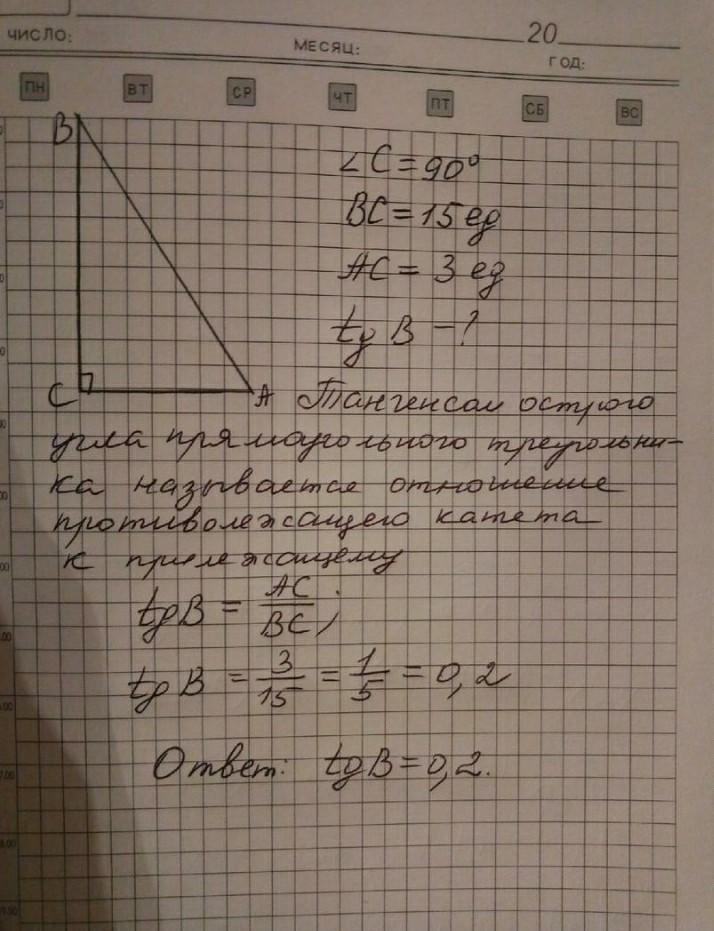 20
ЧИСЛО: МЕСЯЦ: ГОД:
ПН ВТ СР ЧТ ПТ СБ ВС
B
∠C = 90°
BC = 15 ед
AC = 3 ед
tg B - ?
C A Тангенсом острого
угла прямоугольного треугольни-
ка называется отношение
противолежащего катета
к прилежащему
tgB = AC/BC;
tgB = 3/15 = 1/5 = 0,2
Ответ: tgB = 0,2.